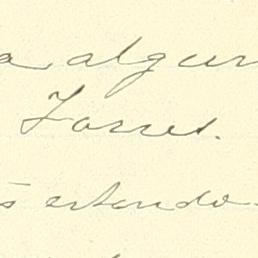 a algun
Torres.
s estando